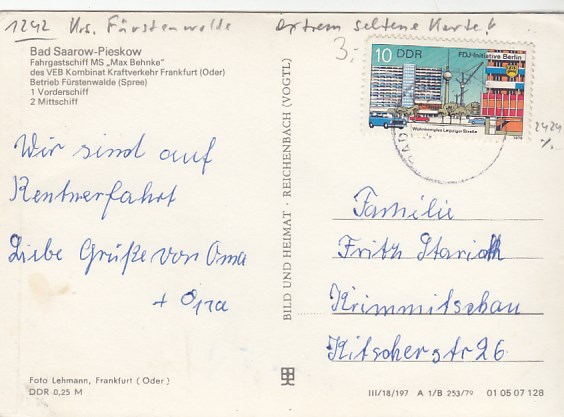 1242 Krs. Fürstenwalde extrem seltene Karte!
3,-
Bad Saarow-Pieskow
Fahrgastschiff MS „Max Behnke"
des VEB Kombinat Kraftverkehr Frankfurt (Oder)
Betrieb Fürstenwalde (Spree)
1 Vorderschiff
2 Mittschiff
10 DDR FDJ-Initiative Berlin
Wohnkomplex Leipziger Straße
1979
2424
Wir sind auf
Rentnerfahrt
Liebe Grüße von Oma
+ Opa
BILD UND HEIMAT · REICHENBACH (VOGTL)
Familie
Fritz
Krimmitschau
Kitscherstr 26
Foto Lehmann, Frankfurt (Oder)
DDR 0,25 M
III/18/197 A 1/B 253/79 01 05 07 128